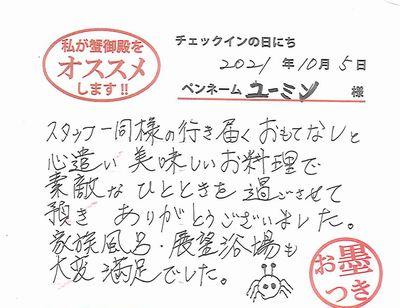 私が蟹御殿を
オススメ
します!!
チェックインの日にち
2021年10月5日
ペンネーム ユーミン 様
スタッフ一同様の行き届くおもてなしと
心遣い 美味しいお料理で
素敵な ひとときを 過ごさせて
頂き ありがとうございました。
家族風呂・展望浴場も
大変 満足でした。
お墨
つき